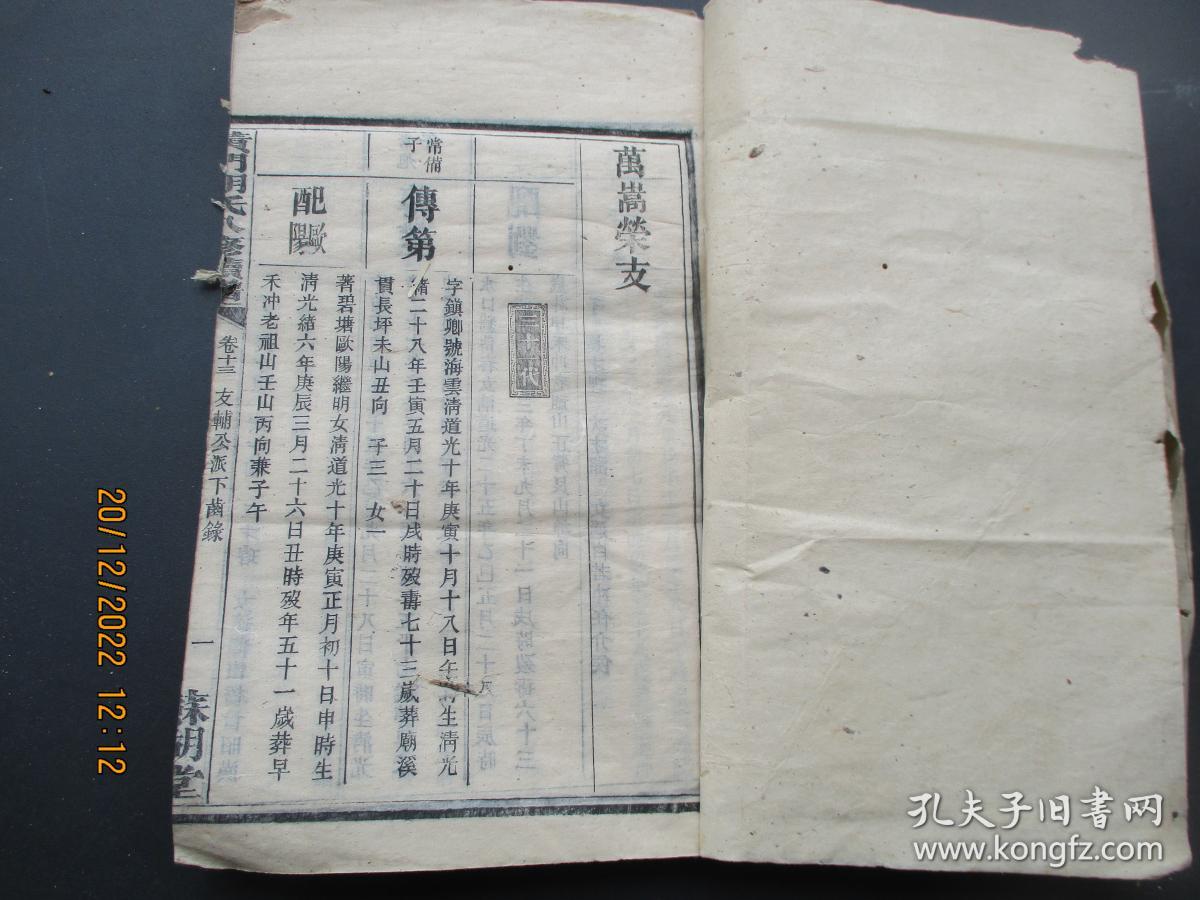 萬嵩榮支
三十一代
常備
子
傳第
字鎮卿號海雲清道光十年庚寅十月十八日午時生清光
緒二十八年壬寅五月二十日戌時歿壽七十三歲葬廟溪
貫長坪未山丑向 子三 女一
配歐陽
著碧塘歐陽繼明女清道光十年庚寅正月初十日申時生
清光緒六年庚辰三月二十六日丑時歿年五十一歲葬早
禾冲老祖山壬山丙向兼子午
卷十三 支輔公派下齒錄
一
20/12/2022 12:12
孔夫子旧书网
www.kongfz.com